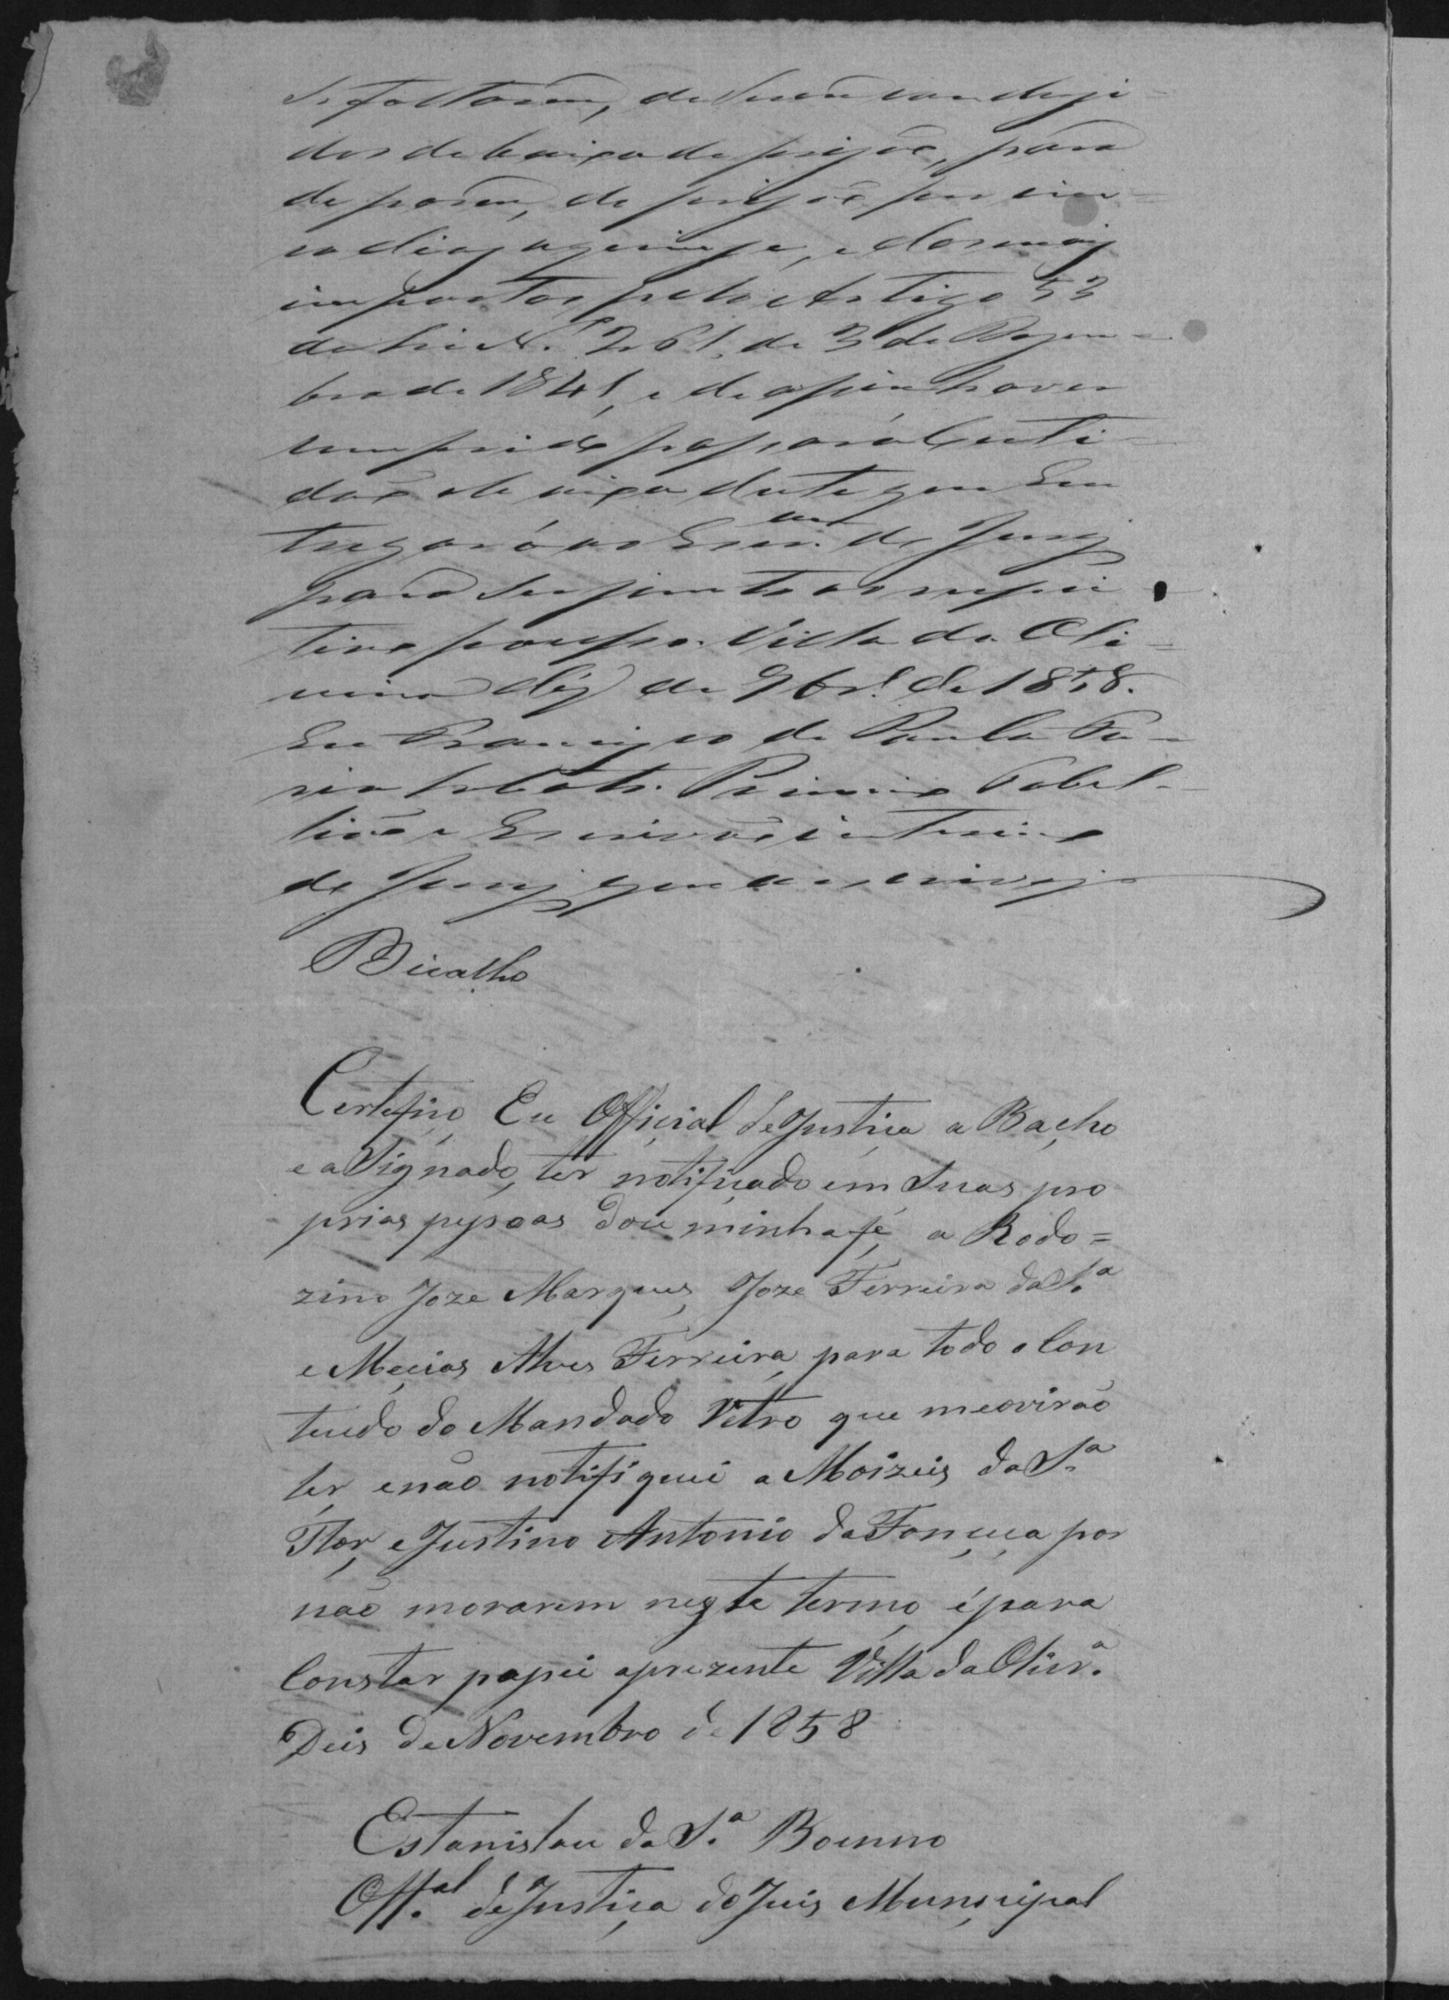 se faltarem, de serem condusi-
dos debaixo de prizão, para
deporem, de prizão por cin-
co dias a quinze, e dos mais
impostos pelo Artigo 53
da Lei N.º 261, de 3 de Dezem-
bro de 1841, e de assim haver
cumprido passará Certi-
dão abaixo deste que En
tregará ao Escr.am do Jury
para ser junto ao respec
tivo processo. Villa da Oli-
veira dez de 9br.º de 1858.
Eu Francisco de Paula
Primeiro Tabel-
lião e Escrivão interino
do Jury que o escrevy
Bicalho
Certefico Eu Official de Justiça a Bacho
e aSignado, ter notificado em Suas pro
prias pessoas dou minha fé, a Rodo=
zino Joze Marques, Joze Ferreira da S.ª
e Mecias Alves Ferreira, para todo o Con
teudo do Mandado Retro que me
ter, e não notifiquei a Moizeis da S.ª
Flor, e Justino Antonio da Fonceca por
não morarem nezte termo, é para
Constar passei aprezente Villa da Oliv.ª
Deis de Novembro de 1858
Estanislau da S.ª Boenno
Off.al de Justiça do Juis Municipal